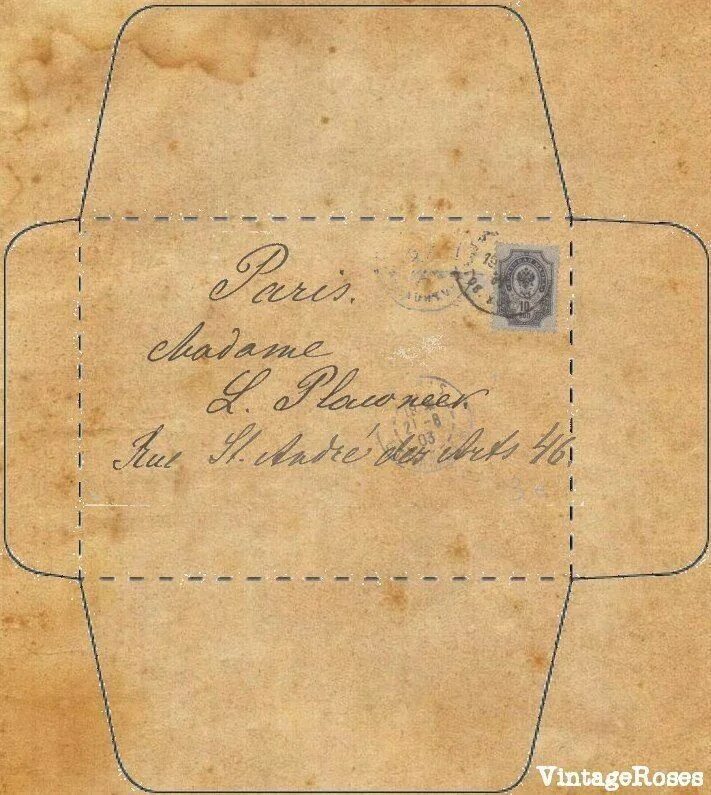 Paris.
Madame
L. Plawneek
Rue St. André des Arts 46
19
10
21-8
03
VintageRoses